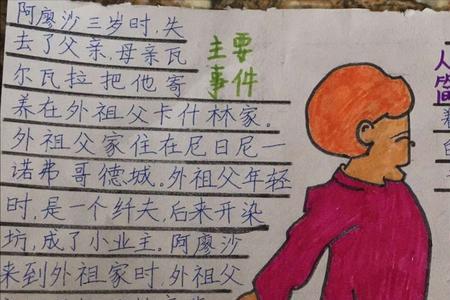 阿廖沙三岁时,失
去了父亲,母亲瓦
尔瓦拉把他寄
养在外祖父卡什林家。
外祖父家住在尼日尼一
诺弗哥德城。外祖父年轻
时,是一个纤夫,后来开染
坊,成了小业主。阿廖沙
来到外祖家时,外祖父
主要
事件
人